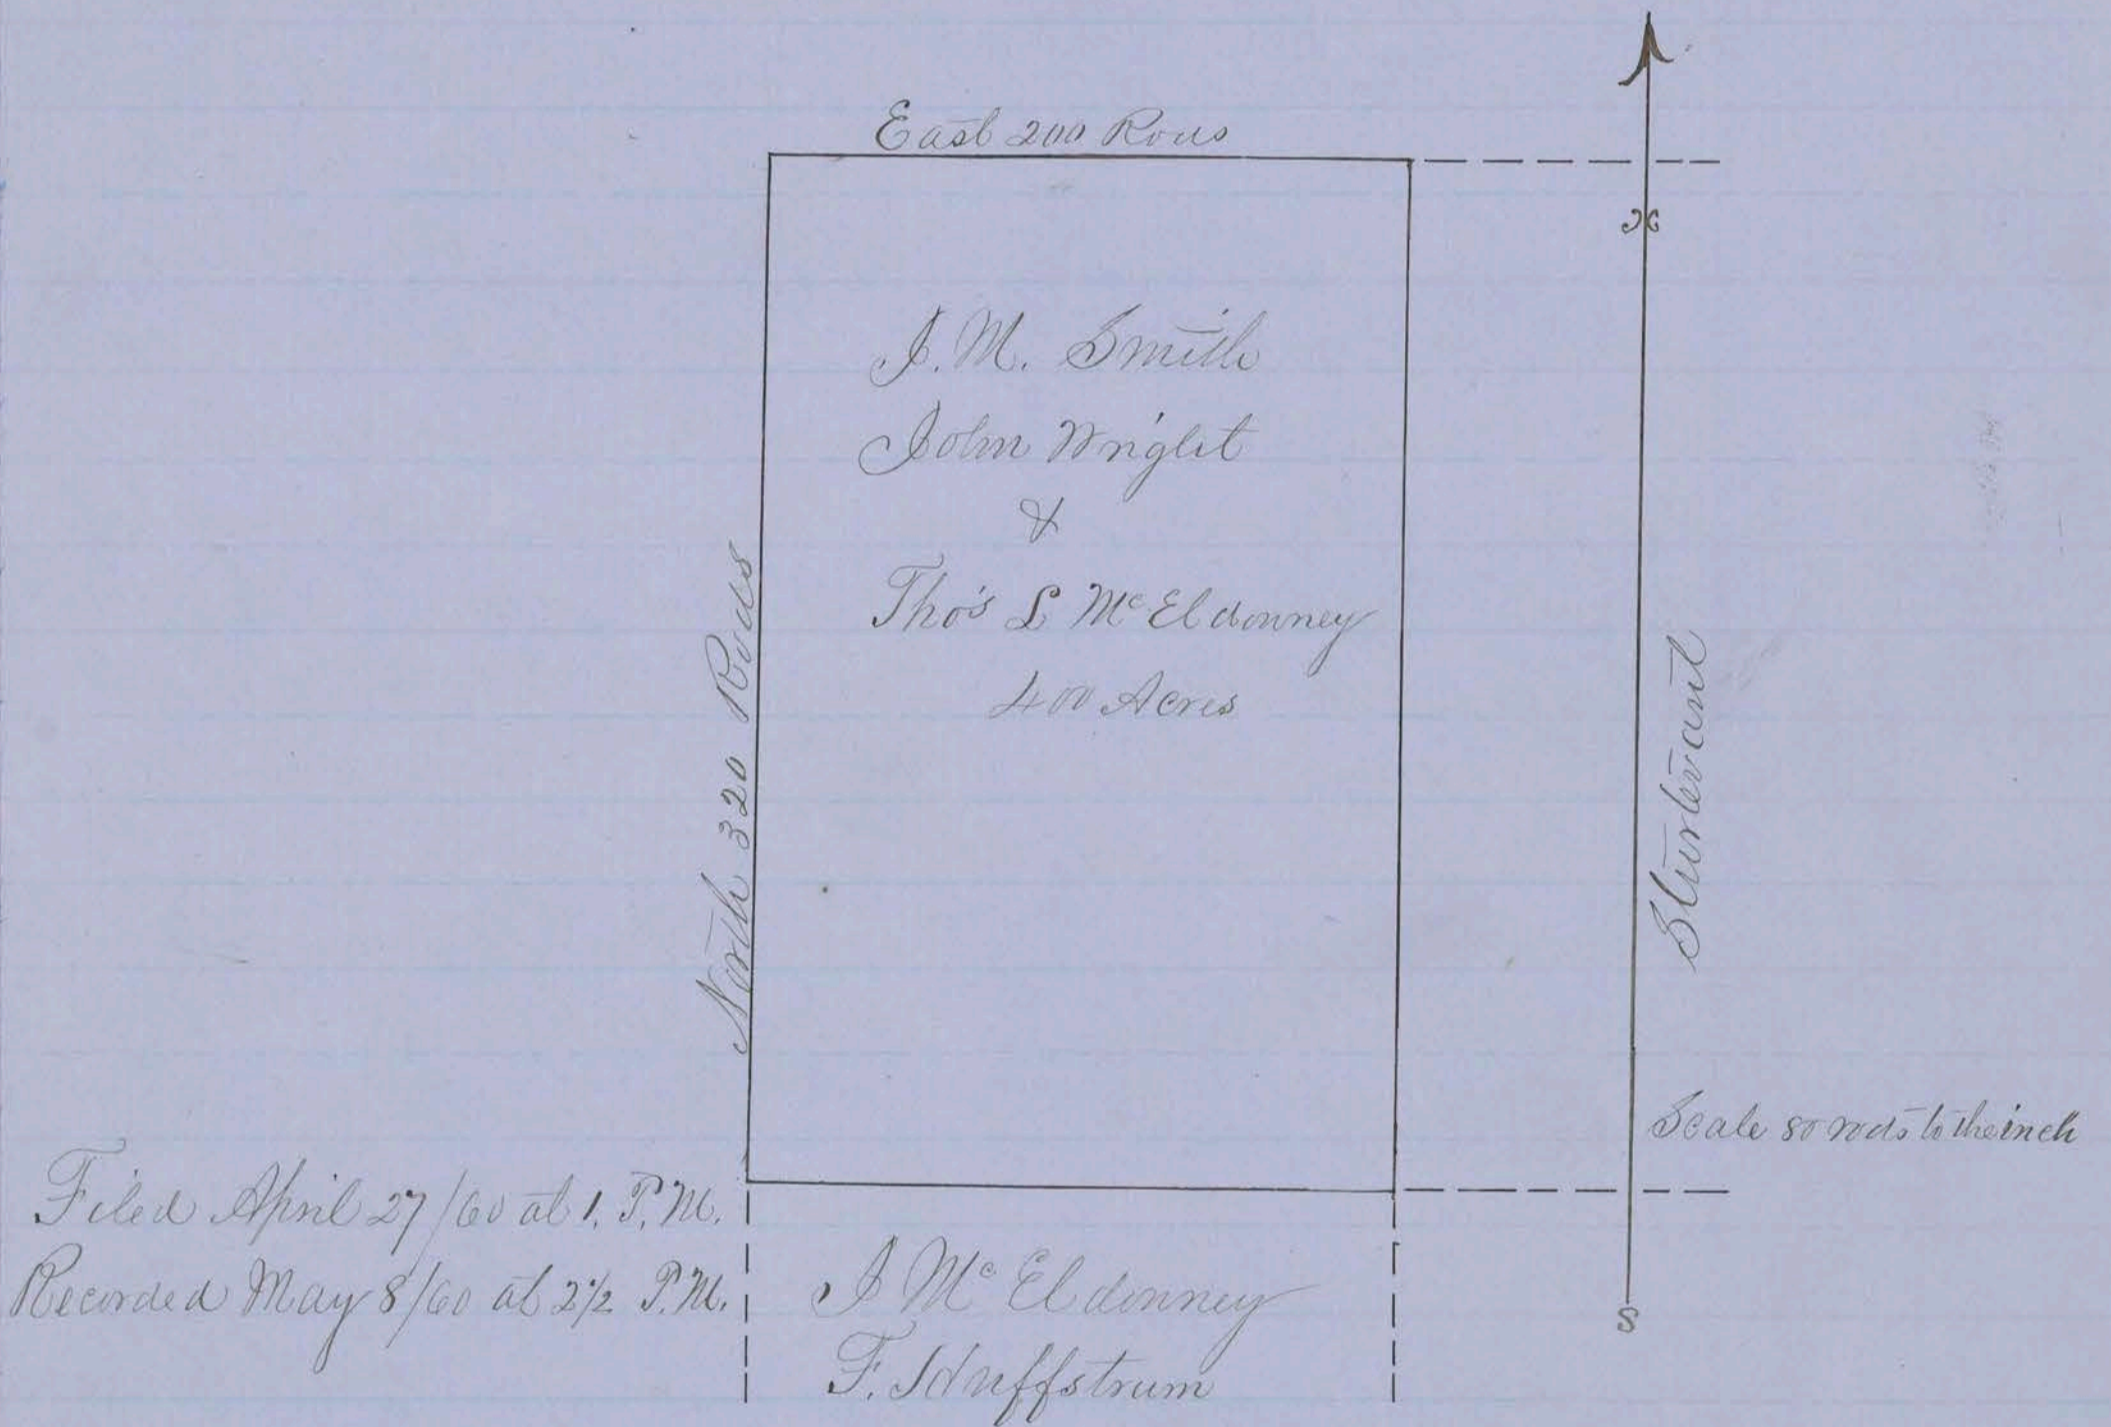 East 200 Rods
J. M. Smith
John Wright
&
Tho's L McEldonney
400 Acres
North 320 Rods
N
Sturtevant
Scale 80 rods to the inch
S
Filed April 27/60 at 1. P.M.
Recorded May 8/60 at 2 1/2 P.M.
J McEldonney
F. Huffstrum